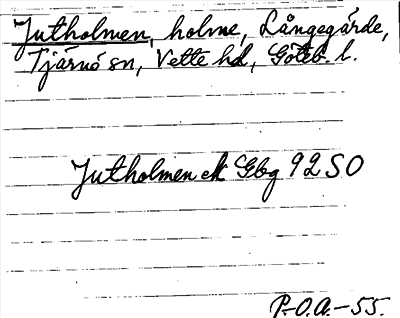 Jutholmen, holme, Långegärde,
Tjärnö sn, Vette hd, Göteb. l.
Jutholmen ek Gbg 92 SO
P.-O.A.-55.